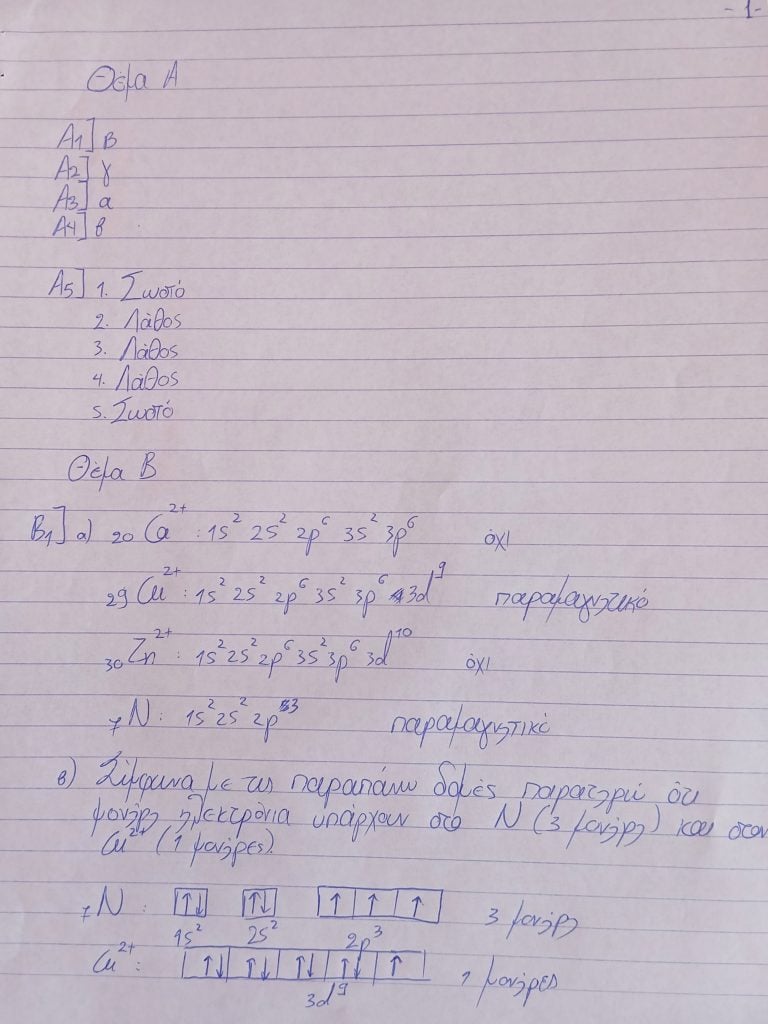 - 1 -
Θέμα Α
Α1] β
Α2] γ
Α3] α
Α4] β
Α5] 1. Σωστό
2. Λάθος
3. Λάθος
4. Λάθος
5. Σωστό
Θέμα Β
Β1] α) ₂₀Ca²⁺ : 1s² 2s² 2p⁶ 3s² 3p⁶ όχι
₂₉Cu²⁺ : 1s² 2s² 2p⁶ 3s² 3p⁶ 3d⁹ παραμαγνητικό
₃₀Zn²⁺ : 1s² 2s² 2p⁶ 3s² 3p⁶ 3d¹⁰ όχι
₇N : 1s² 2s² 2p³ παραμαγνητικό
β) Σύμφωνα με τις παραπάνω δομές παρατηρώ ότι
μονήρη ηλεκτρόνια υπάρχουν στο N (3 μονήρη) και στον
Cu²⁺ (1 μονήρες).
₇N : ↑↓ ↑↓ ↑ ↑ ↑ 3 μονήρη
1s² 2s² 2p³
Cu²⁺ : ↑↓ ↑↓ ↑↓ ↑↓ ↑ 1 μονήρες
3d⁹